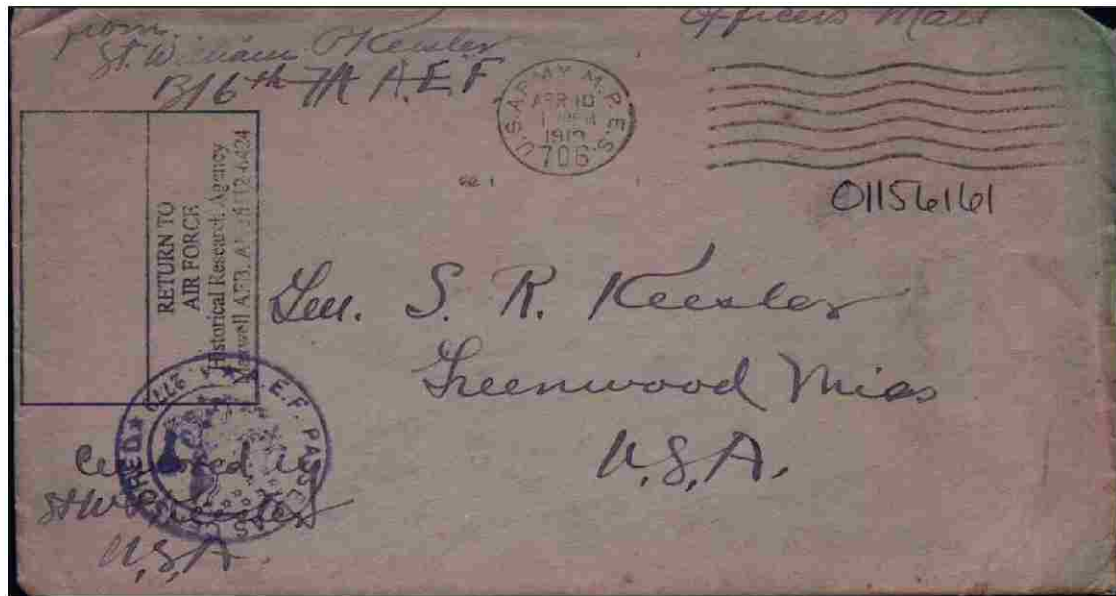 from.
Officers Mail
Lt. William Keesler
B/6th FA A.E.F
U.S. ARMY M.P.E.S.
APR 10
1919
706
01156161
RETURN TO
AIR FORCE
Historical Research Agency
Maxwell AFB, AL 36112-6424
Gen. S. R. Keesler
Greenwood Miss
U.S.A.
A.E.F. PASSED AS CENSORED
Censored by
U.S.A.